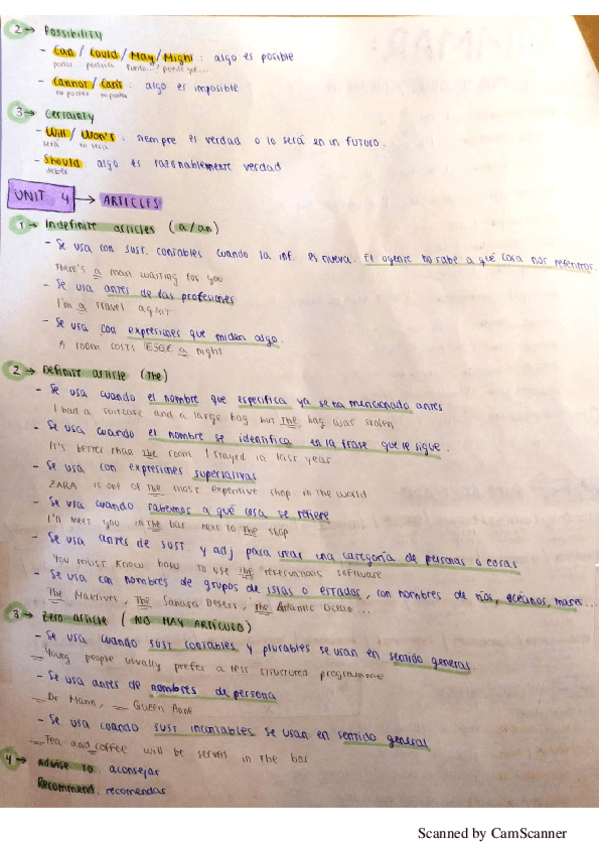 2 → Possibility
- Can / Could / May / Might : algo es posible
poder podría
- Cannot / Can't : algo es imposible
no poder no poder
3 → Certainty
- Will / Won't : siempre es verdad o lo será en un futuro.
será no será
- Should : algo es razonablemente verdad
debería
UNIT 4 → ARTICLES
1 → Indefinite articles (a/an)
- Se usa con sust. contables cuando la inf. es nueva. El oyente no sabe a qué cosa nos referimos.
There's a man waiting for you
- Se usa antes de las profesiones
I'm a travel agent
- Se usa con expresiones que miden algo.
A room costs a night
2 → Definite article (The)
- Se usa cuando el nombre que especifica ya se ha mencionado antes
I had a suitcase and a large bag but the bag was stolen
- Se usa cuando el nombre se identifica en la frase que le sigue.
It's better than the room I stayed in last year
- Se usa con expresiones superlativas
ZARA is one of the most expensive shop in the world
- Se usa cuando sabemos a qué cosa se refiere
I'll meet you in the bar next to the shop
- Se usa antes de sust. y adj para crear una categoría de personas o cosas
You must know how to use the reservations software
- Se usa con nombres de grupos de islas o estados, con nombres de ríos, océanos, mares...
The Maldives, The Sahara Desert, The Atlantic Ocean ...
3 → Zero article ( NO HAY ARTÍCULO)
- Se usa cuando sust contables y plurables se usan en sentido general
_ Young people usually prefer a less structured programme
- Se usa antes de nombres de persona
_ Dr Mann, _ Queen Anne
- Se usa cuando sust incontables se usan en sentido general
_ Tea and coffee will be served in the bar
4 → Advise to aconsejar
Recommend. recomendar
Scanned by CamScanner